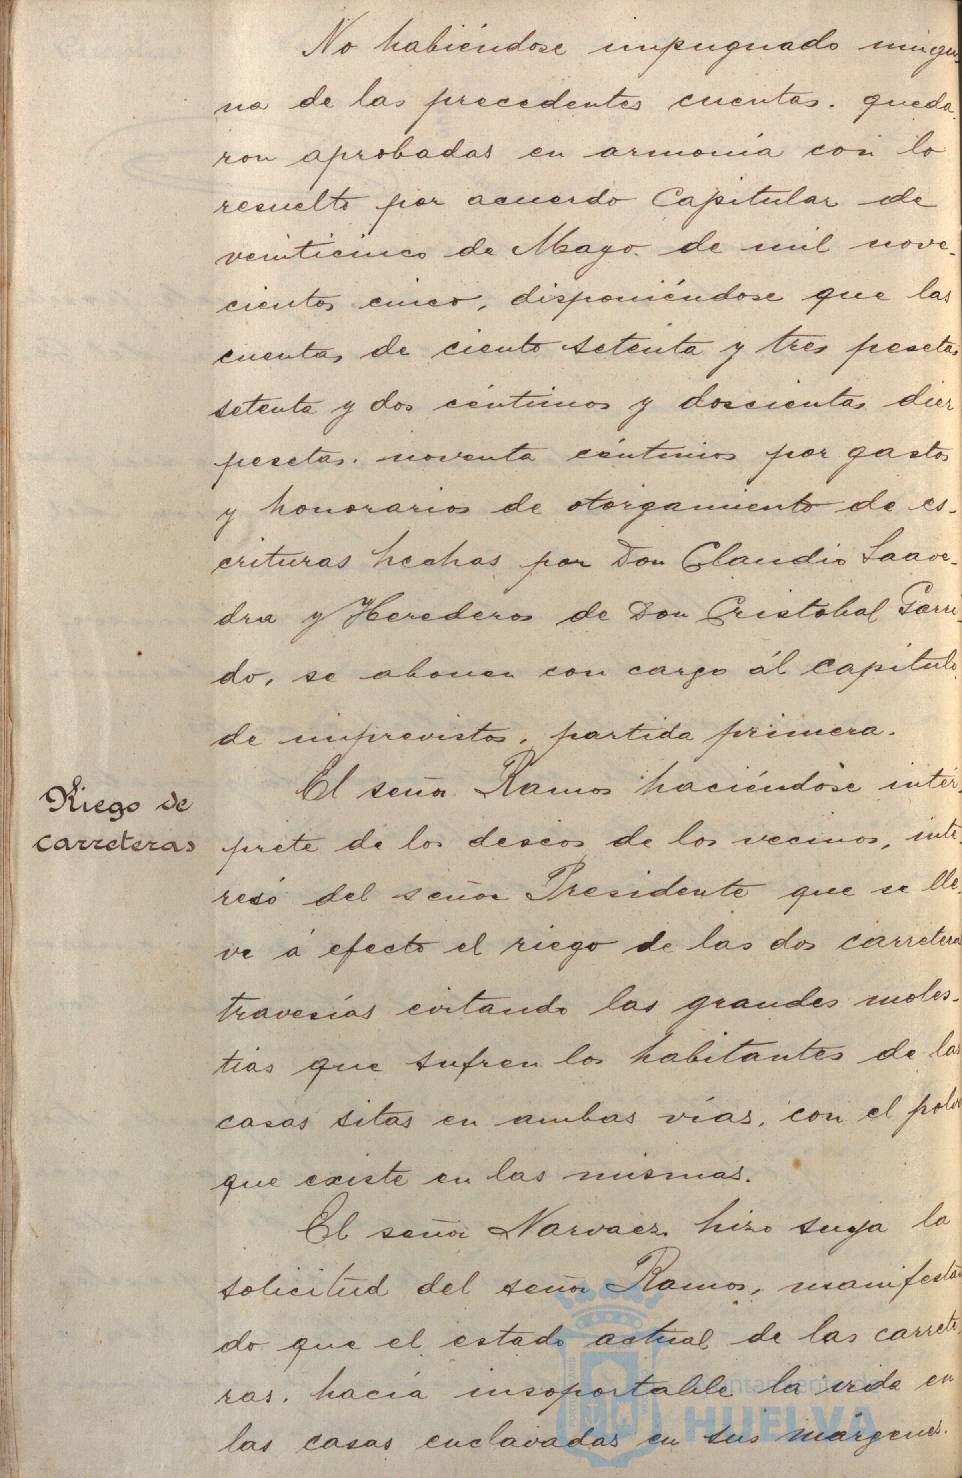 No habiéndose impugnado ningu-
na de las precedentes cuentas. queda-
ron aprobadas en armonía con lo
resuelto por acuerdo Capitular de
veinticinco de Mayo de mil nove-
cientos cinco, disponiéndose que las
cuentas de ciento setenta y tres pesetas
setenta y dos céntimos y doscientas diez
pesetas. noventa céntimos por gastos
y honorarios de otorgamiento de es-
crituras hechas por Don Claudio Saave-
dra y Herederos de Don Cristobal Garri-
do, se abonen con cargo ál capitulo
de imprevistos, partida primera.
Riego de
carreteras
El señor Ramos haciéndose intér-
prete de los deseos de los vecinos, inte-
resó del señor Presidente que se lle-
ve á efecto el riego de las dos carreteras
travesías evitando las grandes moles-
tias que sufren los habitantes de las
casas sitas en ambas vías, con el polvo
que existe en las mismas.
El señor Narvaez hizo suya la
solicitud del señor Ramos, manifestan-
do que el estado actual de las carrete-
ras. hacía insoportable la vida en
las casas enclavadas en sus márgenes.
Ayuntamiento de
HUELVA